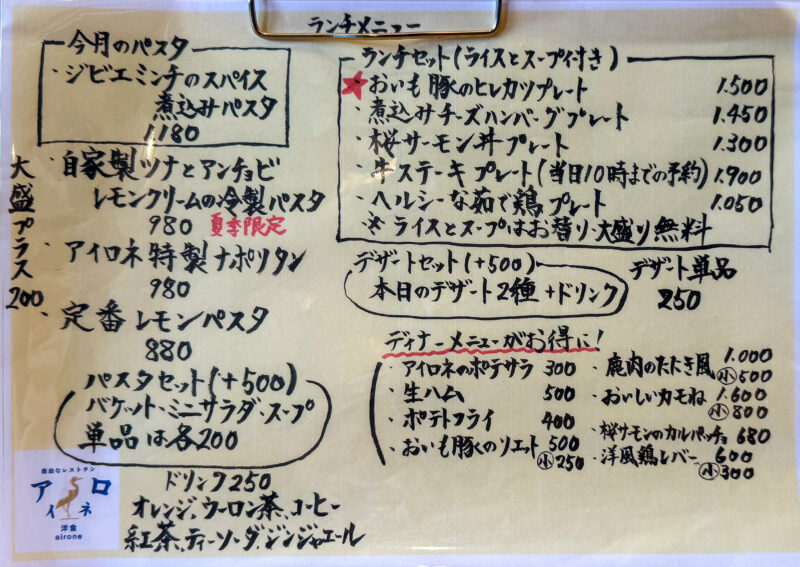 ランチメニュー
今月のパスタ
・ジビエミンチのスパイス
煮込みパスタ
1180
・自家製ツナとアンチョビ
レモンクリームの冷製パスタ
980 夏季限定
・アイロネ特製ナポリタン
980
・定番レモンパスタ
880
大盛プラス200
パスタセット(+500)
バケット・ミニサラダ・スープ
単品は各200
ドリンク250
オレンジ、ウーロン茶、コーヒー
紅茶、ティーソーダ、ジンジャエール
自由なレストラン
アイロネ
洋食
airone
ランチセット(ライスとスープ付き)
★おいも豚のヒレカツプレート 1.500
・煮込みチーズハンバーグプレート 1.450
・桜サーモン丼プレート 1.300
・牛ステーキプレート(当日10時までの予約) 1.900
・ヘルシーな茹で鶏プレート 1.050
※ライスとスープはお替り・大盛り無料
デザートセット(+500)
本日のデザート2種+ドリンク
デザート単品
250
ディナーメニューがお得に!
・アイロネのポテサラ 300
・生ハム 500
・ポテトフライ 400
・おいも豚のリエット 500
小250
・鹿肉のたたき風 1.000
小500
・おいしいカモね 1.600
小800
・桜サーモンのカルパッチョ 680
・洋風鶏レバー 600
小300